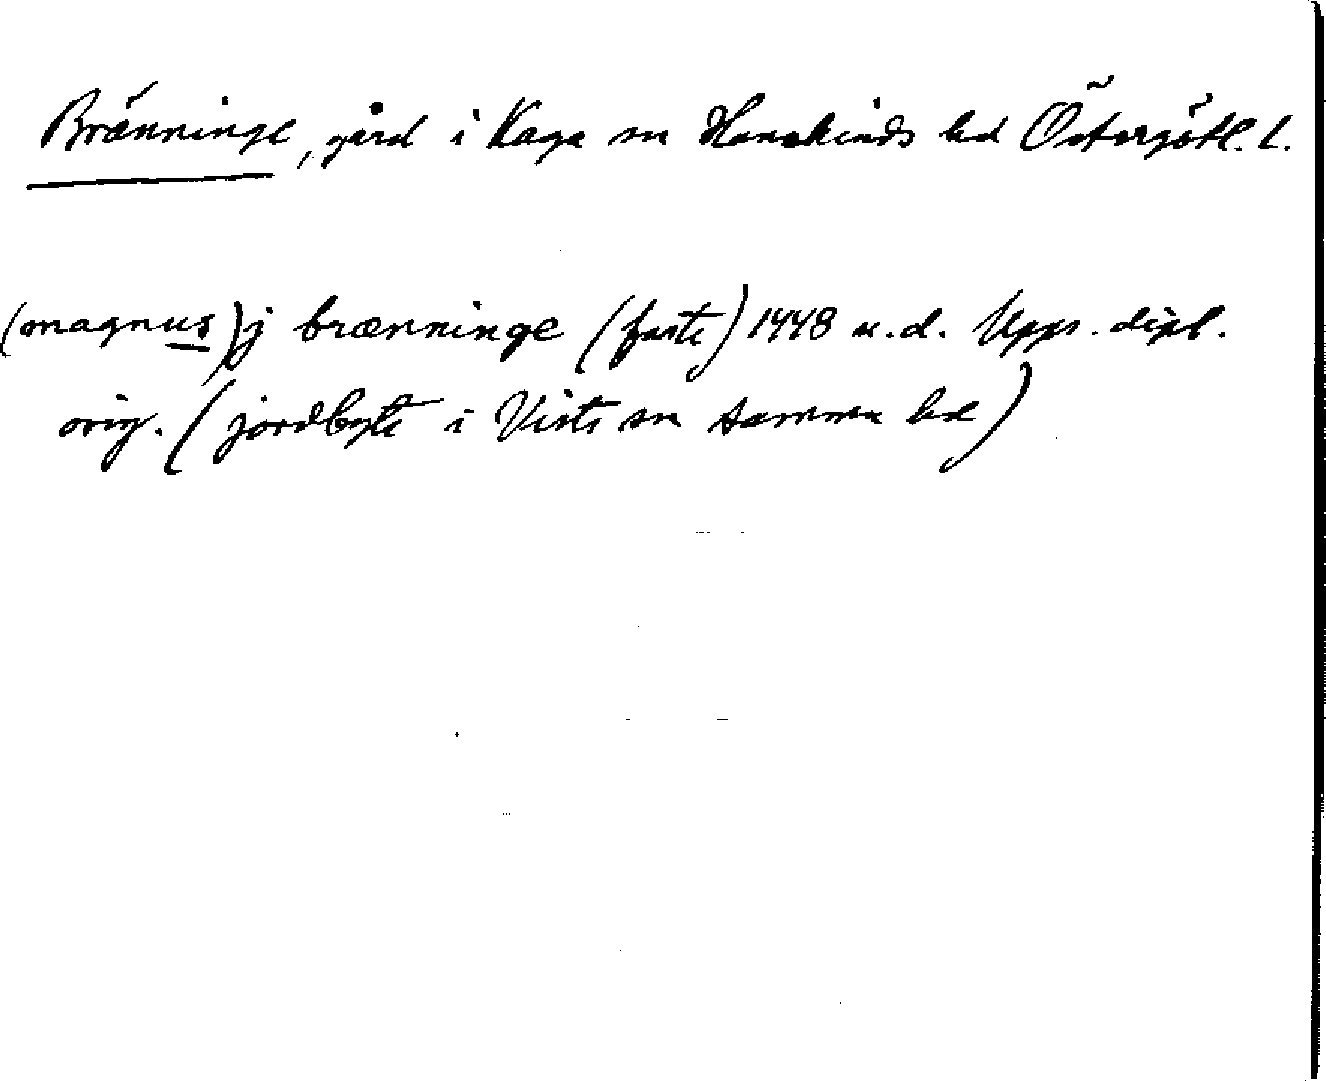 Bränninge, gård i Kaga sn Hanekinds hd Östergötl. l.
(magnus) j brænninge (faste) 1448 u.d. Upps. dipl.
orig. (jordbyte i Vists sn samma hd)